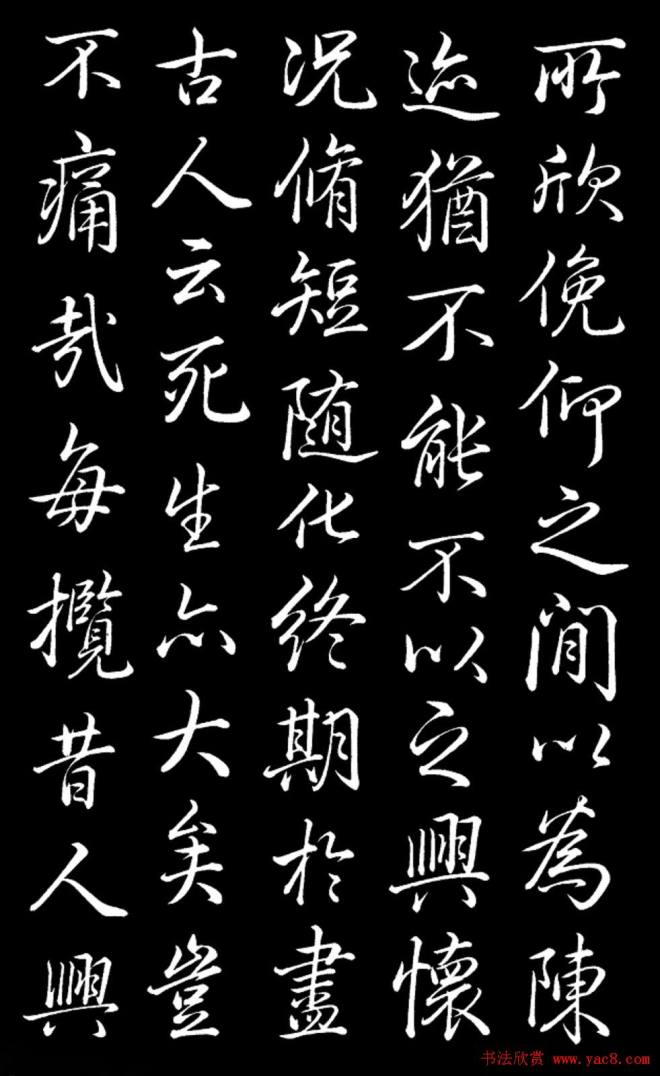 所欣俛仰之閒以為陳
迹猶不能不以之興懷
况脩短随化終期於盡
古人云死生亦大矣豈
不痛哉每攬昔人興
书法欣赏 www.yac8.com